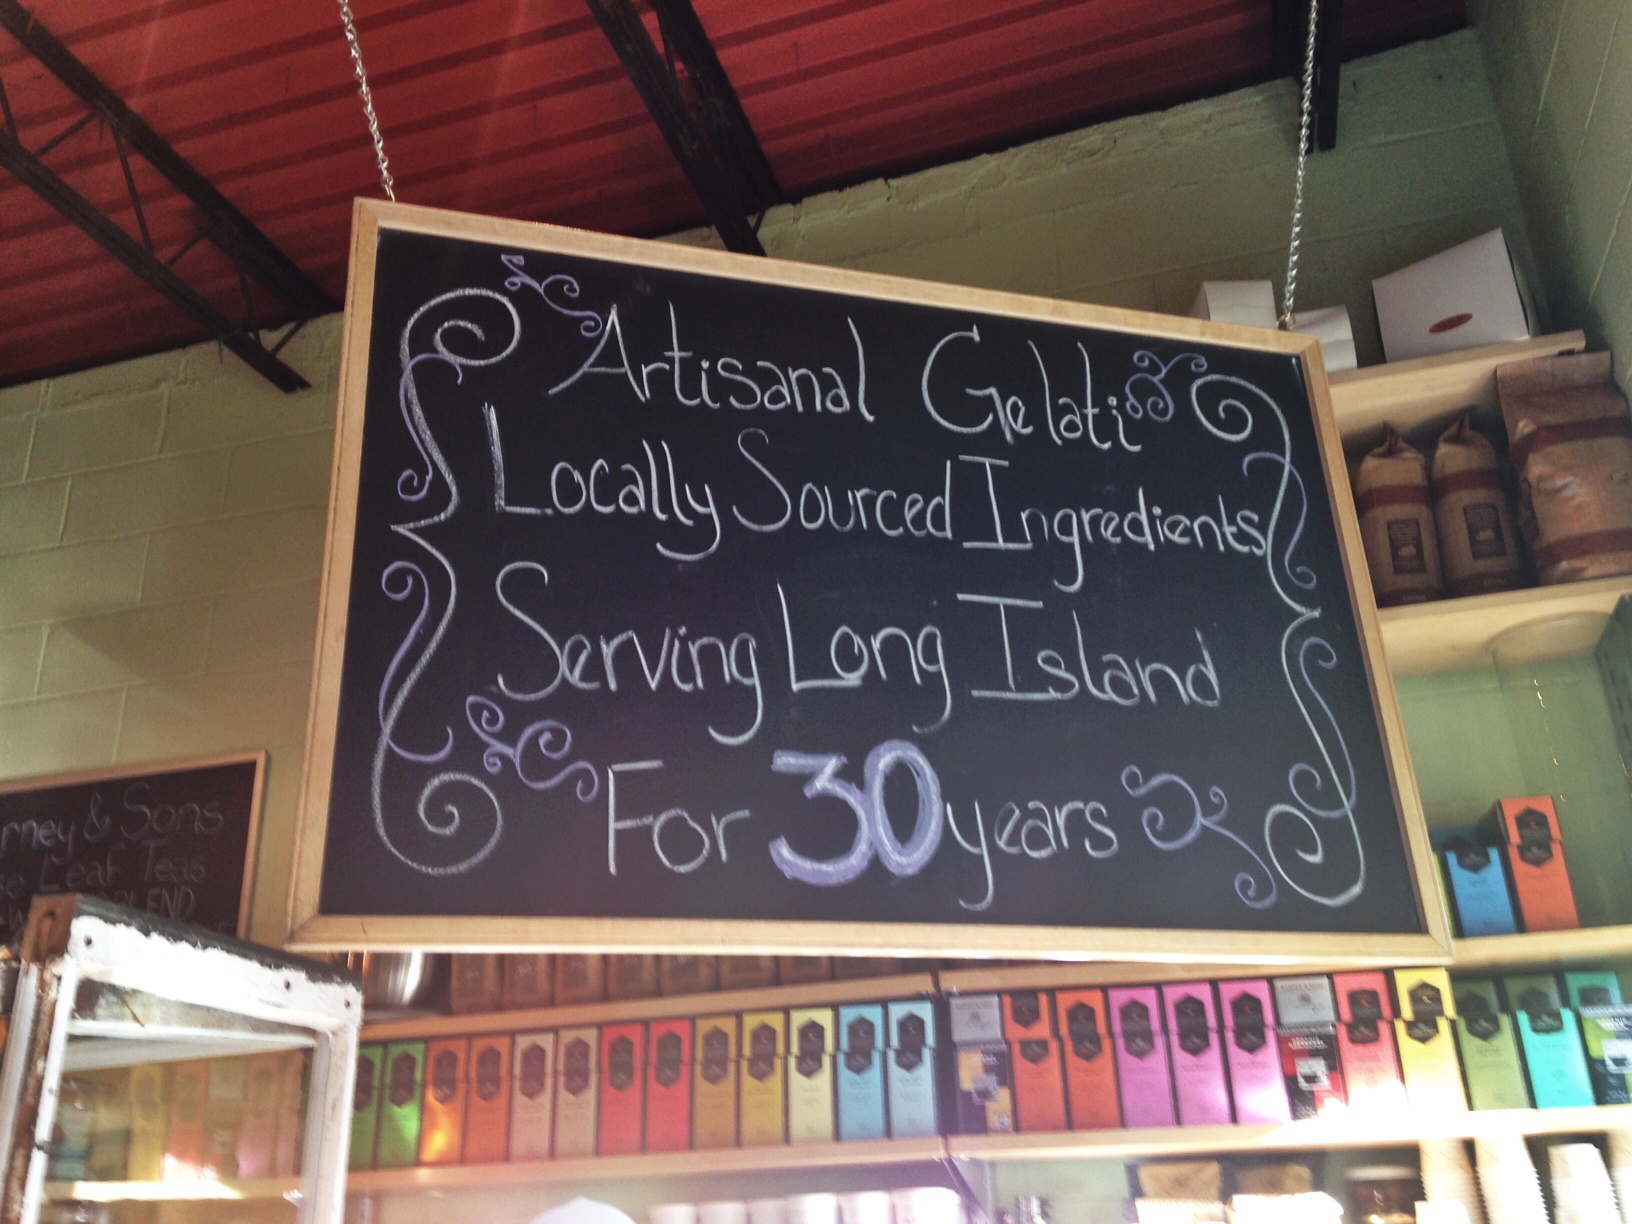 Artisanal Gelati
Locally Sourced Ingredients
Serving Long Island
For 30 years
rney & Sons
Leaf Teas
BLEND